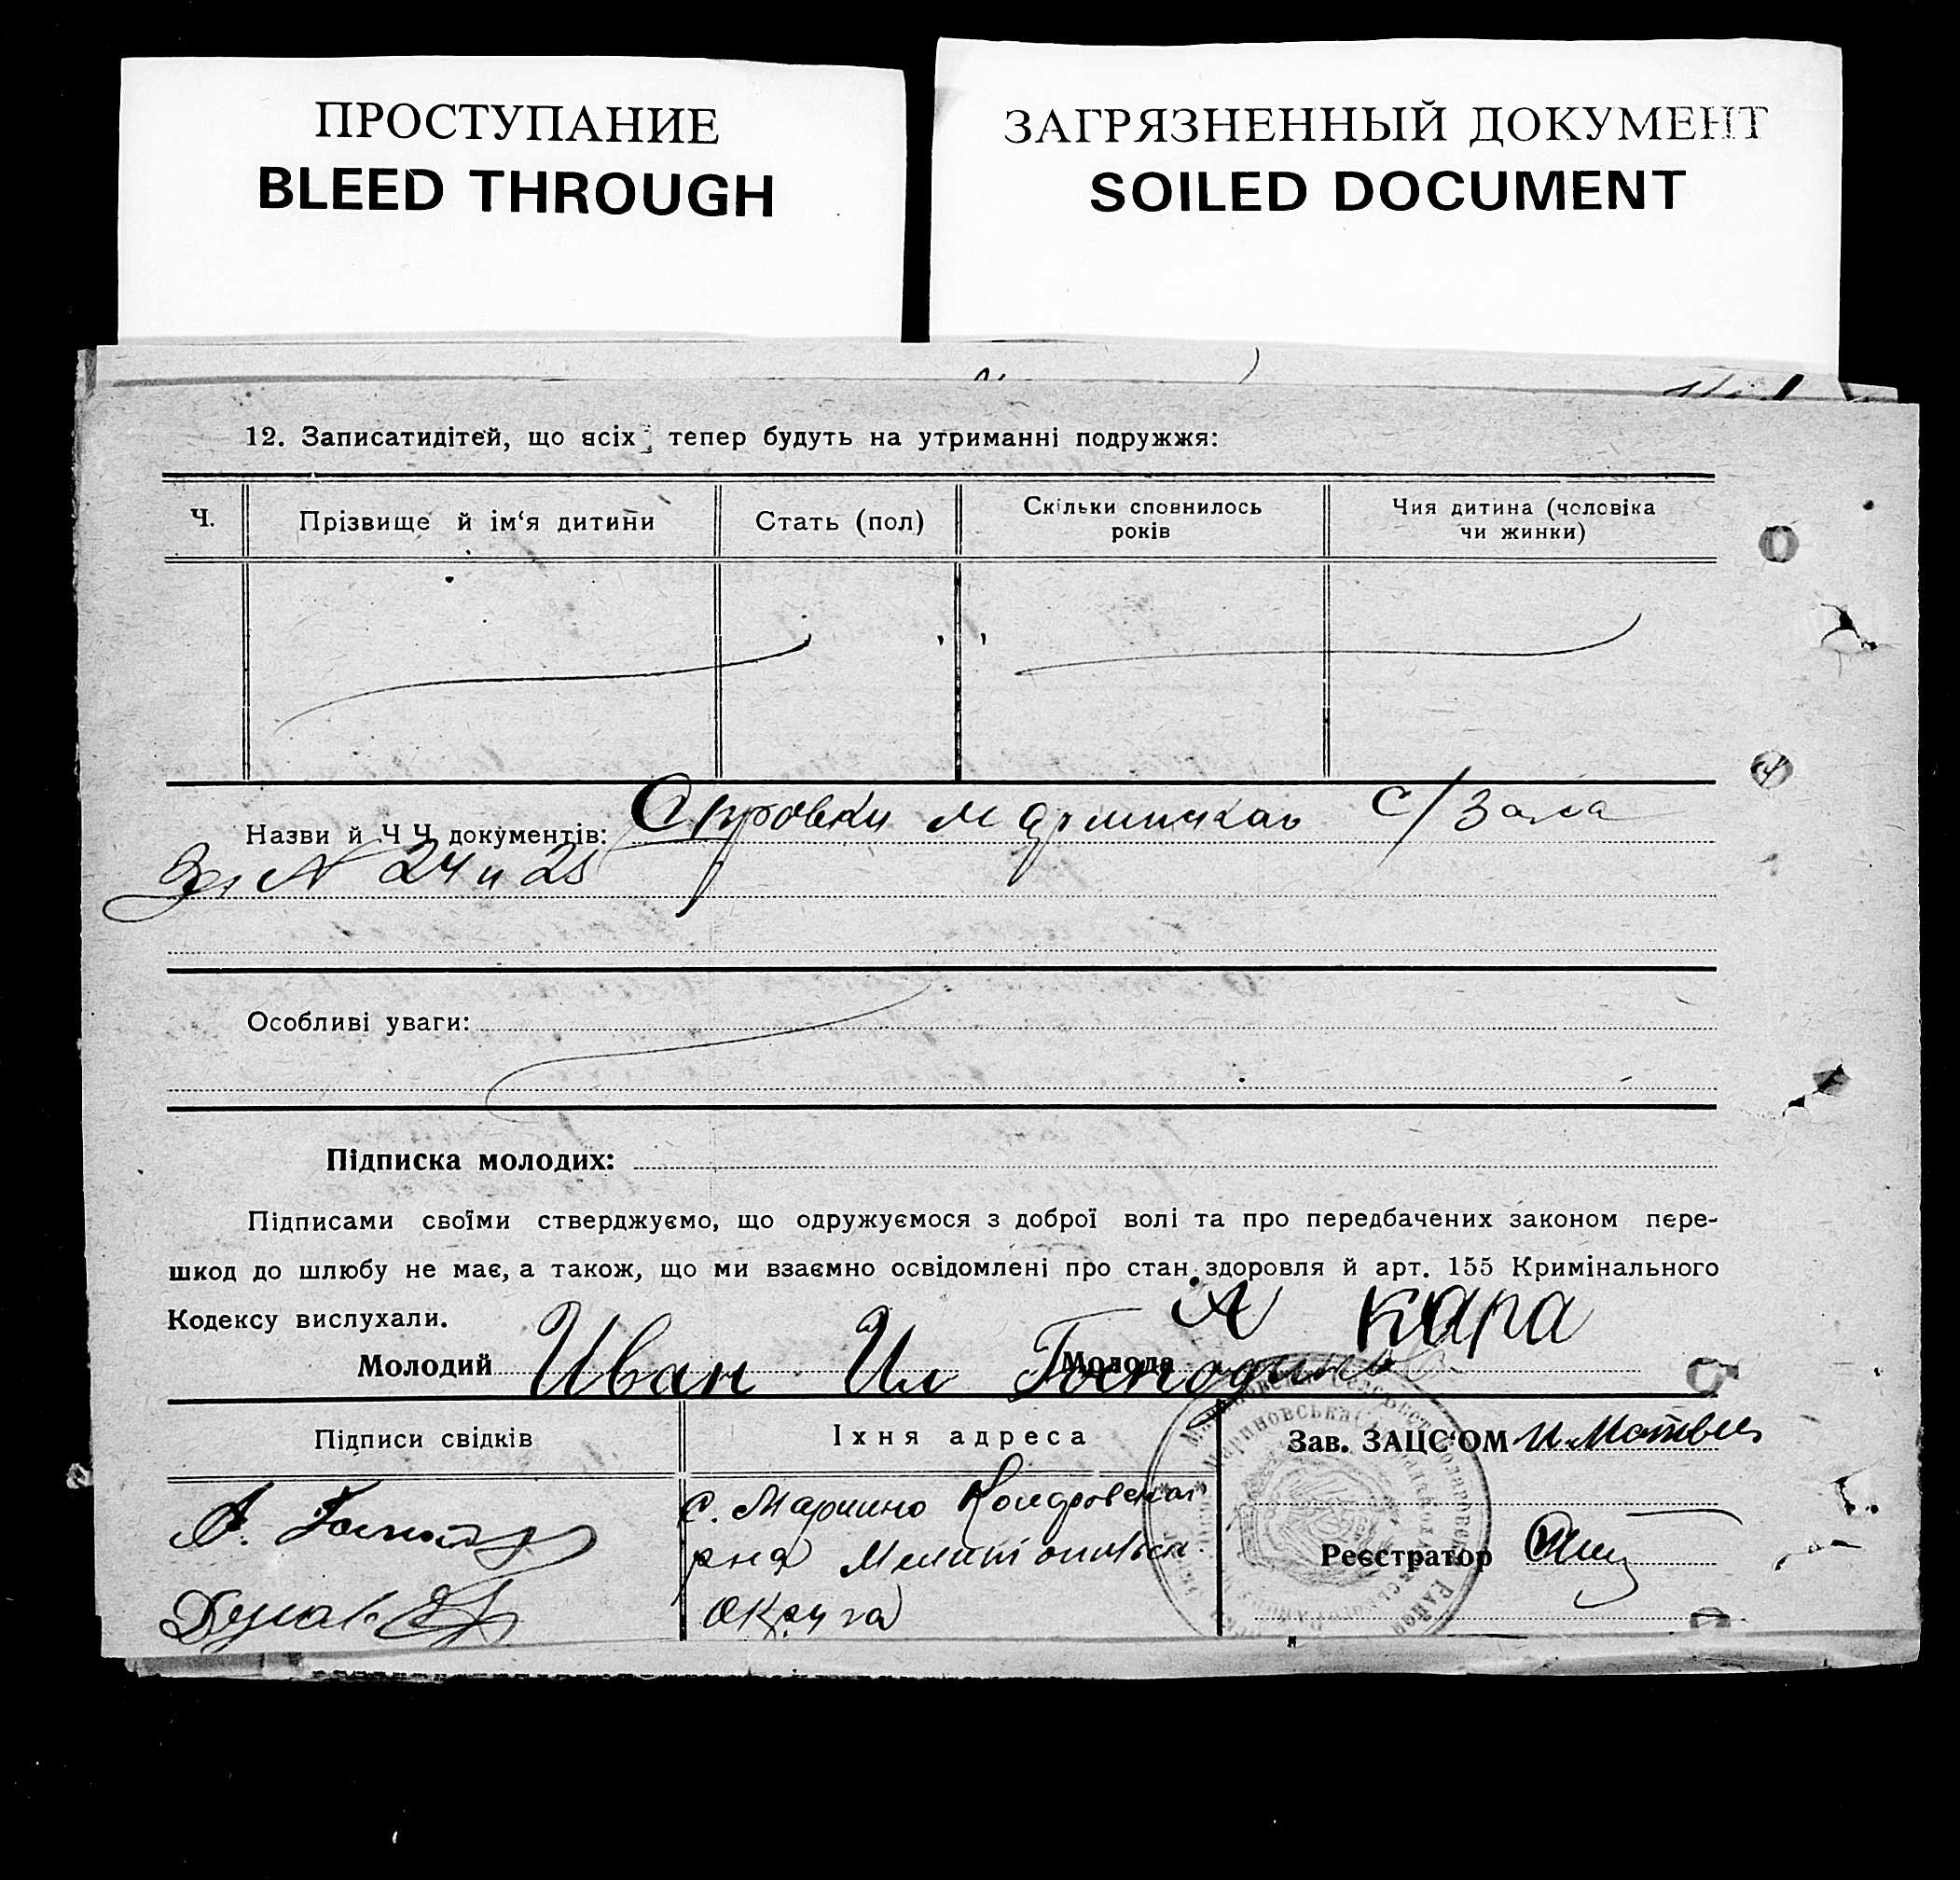 ПРОСТУПАНИЕ
BLEED THROUGH
ЗАГРЯЗНЕННЫЙ ДОКУМЕНТ
SOILED DOCUMENT
12. Записатидітей, що всіх тепер будуть на утриманні подружжя:
Ч. Прізвище й ім‘я дитини Стать (пол) Скільки сповнилось років Чия дитина (чоловіка чи жинки)
Назви й Ч Ч документів: с/Зага
За № 24 и 25
Особливі уваги:
Підписка молодих:
Підписами своїми стверджуємо, що одружуємося з доброї волі та про передбачених законом пере-
шкод до шлюбу не має, а також, що ми взаємно освідомлені про стан здоровля й арт. 155 Кримінального
Кодексу вислухали.
А Кара
Молодий Иван Ил Господинов Молода
Підписи свідків Їхня адреса Зав. ЗАЦС‘ОМ И. Матвее
с. Мариино
рна Мелитопольск.
Округа
Реєстратор